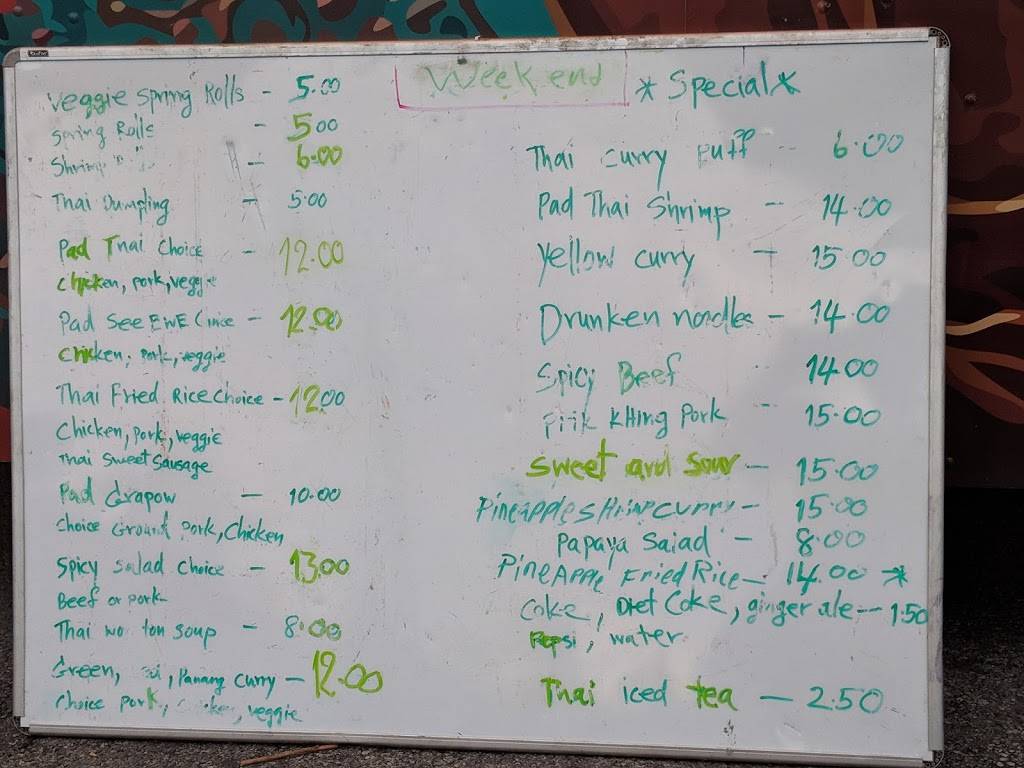 Veggie Spring Rolls - 5.00
Spring Rolls - 5.00
Shrimp " " - 6.00
Thai Dumpling - 5.00
Pad Thai Choice - 12.00
Chicken, pork, veggie
Pad See EWE Choice - 12.00
Chicken, Pork, veggie
Thai Fried Rice Choice - 12.00
Chicken, Pork, veggie
Thai Sweet Sausage
Pad Grapow - 10.00
Choice Ground Pork, Chicken
Spicy Salad Choice - 13.00
Beef or Pork
Thai wonton soup - 8.00
Green, , Panang curry - 12.00
Choice pork, chicken, veggie
Weekend * Special *
Thai Curry Puff - 6.00
Pad Thai Shrimp - 14.00
Yellow curry - 15.00
Drunken noodles - 14.00
Spicy Beef - 14.00
Prik KHing Pork - 15.00
Sweet and Sour - 15.00
PineApple SHrimp curry - 15.00
Papaya Salad - 8.00
PineAPPLe Fried Rice - 14.00 *
Coke, Diet Coke, ginger ale - 1.50
Pepsi, water
Thai iced tea - 2.50